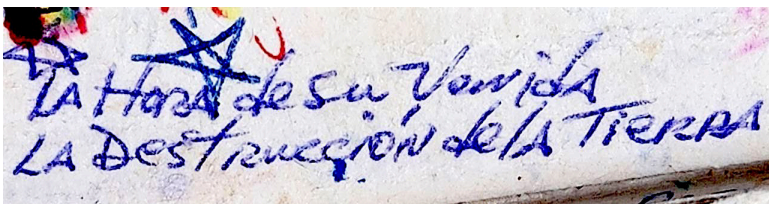 LA HORA de su Venida
LA DestRucciÓN de lA TIERRA